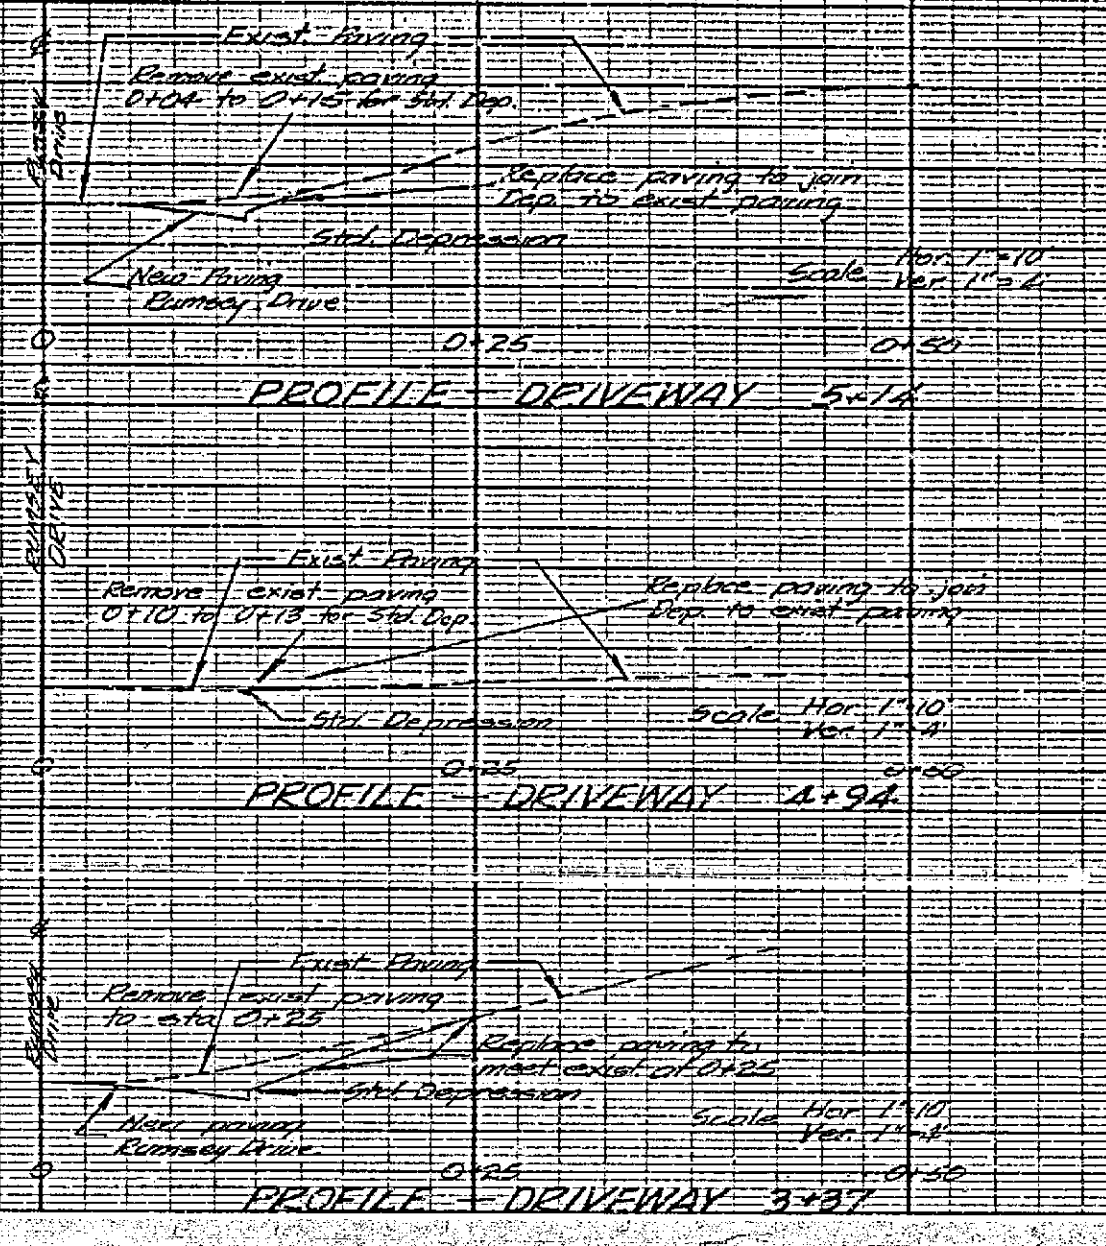 Exist. Paving
Remove exist paving
0+04 to 0+15 for Std. Dep.
Drive
Replace paving to join
Dep. to exist paving
Std. Depression
New Paving
Rumsey Drive
Scale Hor. 1"=10'
Ver. 1"=4'
0 0+25 0+50
PROFILE - DRIVEWAY 5+14
RUMSEY
DRIVE
Exist Paving
Remove exist paving
0+10 to 0+13 for Std. Dep.
Replace paving to join
Dep. to exist paving
Std. Depression
Scale Hor 1"=10'
Ver. 1"=4'
0 0+25 0+50
PROFILE - DRIVEWAY 4+94
Rumsey
Drive
Exist Paving
Remove exist paving
to sta 0+25
Replace paving to
meet exist at 0+25
Std Depression
New paving
Rumsey Drive
Scale Hor 1"=10'
Ver. 1"=4'
0 0+25 0+50
PROFILE - DRIVEWAY 3+37